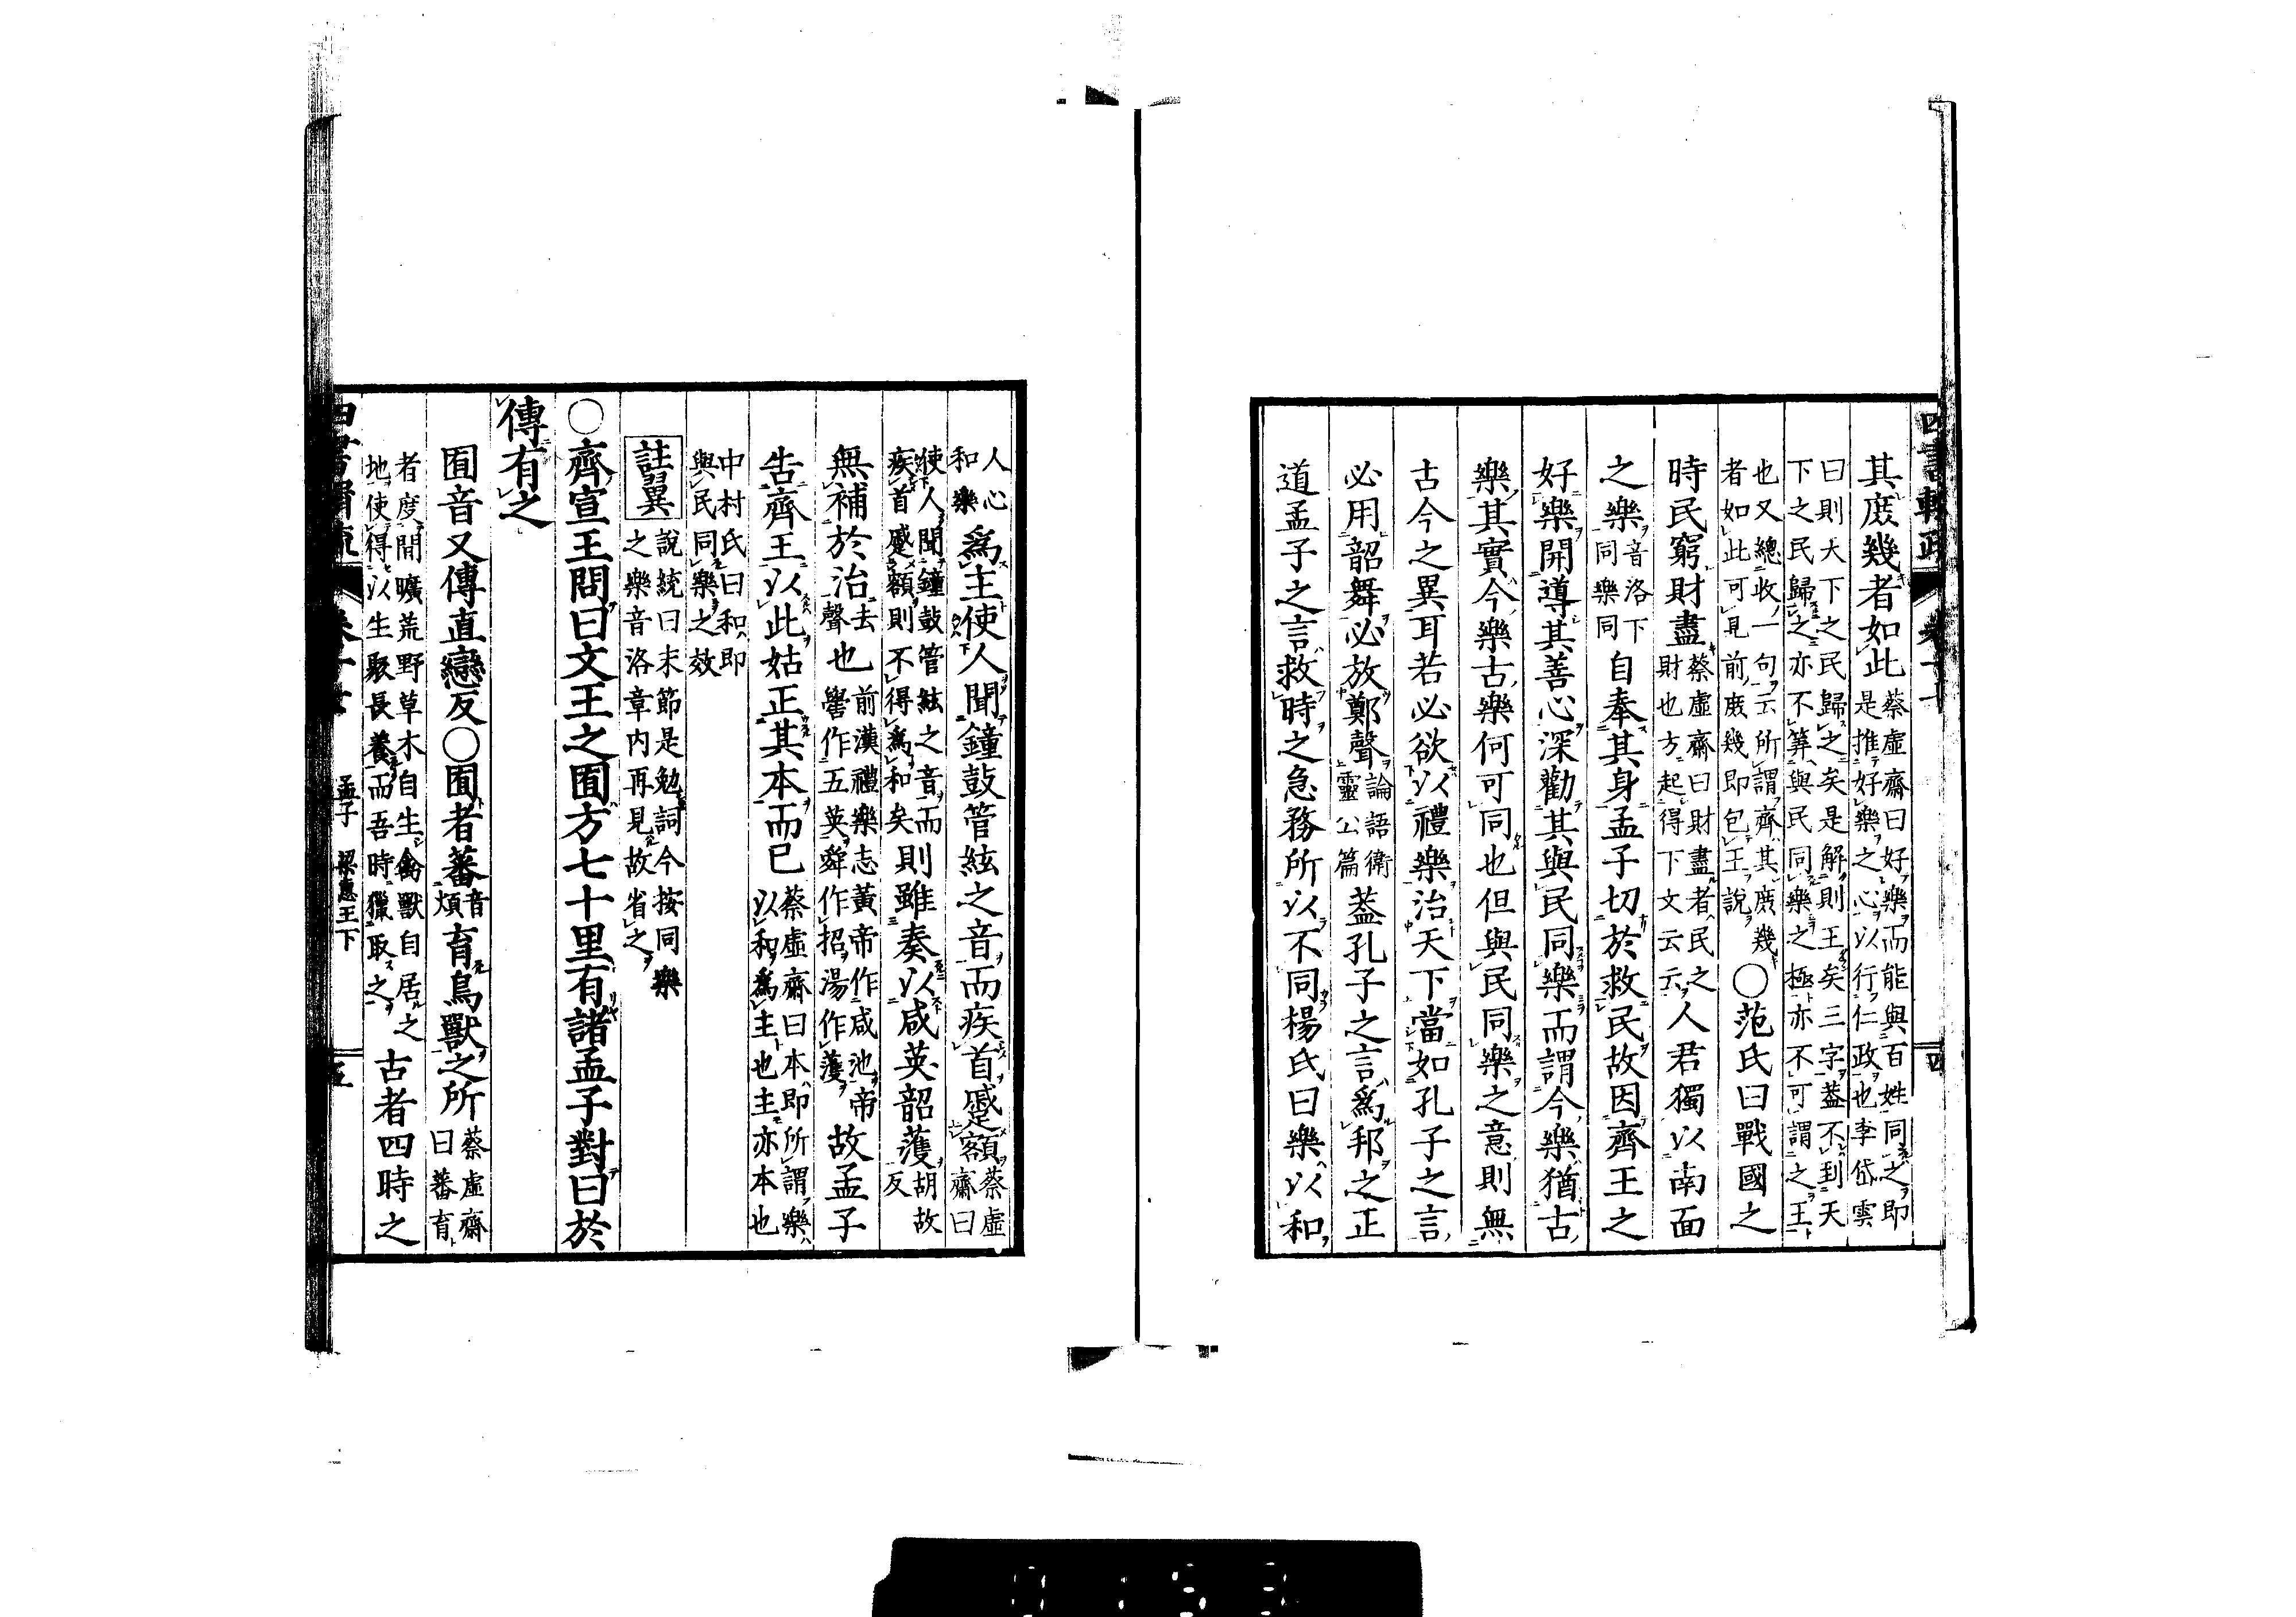 其庻幾者如此蔡虛齋曰好樂而能與百姓同之即
是推好樂之心以行仁政也李岱雲
曰則天下之民歸之矣是解則王矣三字葢不到天
下之民歸之亦不筭與民同樂之極亦不可謂之王
也又總收一句云所謂齊其庻幾
者如此可見前庻幾即包王說〇范氏曰戰國之
時民窮財盡蔡虛齋曰財盡者民之
財也方起得下文云云人君獨以南面
之樂音洛下
同樂同自奉其身孟子切於救民故因齊王之
好樂開導其善心深勸其與民同樂而謂今樂猶古
樂其實今樂古樂何可同也但與民同樂之意則無
古今之異耳若必欲以禮樂治天下當如孔子之言
必用韶舞必放鄭聲論語衛
靈公篇葢孔子之言爲邦之正
道孟子之言救時之急務所以不同楊氏曰樂以和
人心
和樂爲主使人聞鐘鼓管絃之音而疾首蹙頞蔡虛
齋曰
使人聞鐘鼓管絃之音而
疾首蹙頞則不得爲和矣則雖奏以咸英韶頀胡故
反
無補於治去
聲也前漢禮樂志黃帝作咸池帝
嚳作五英舜作招湯作頀故孟子
告齊王以此姑正其本而已蔡虛齋曰本即所謂樂
以和爲主也主亦本也
中村氏曰和即
與民同樂之效
註翼說統曰末節是勉詞今按同樂
之樂音洛章內再見故省之
〇齊宣王問曰文王之囿方七十里有諸孟子對曰於
傳有之
囿音又傳直戀反〇囿者蕃音
煩育鳥獸之所蔡虛齋
曰蕃育
者度閒曠荒野草木自生禽獸自居之
地使得以生聚長養而吾時獵取之古者四時之
孟子 梁惠王下
五
四